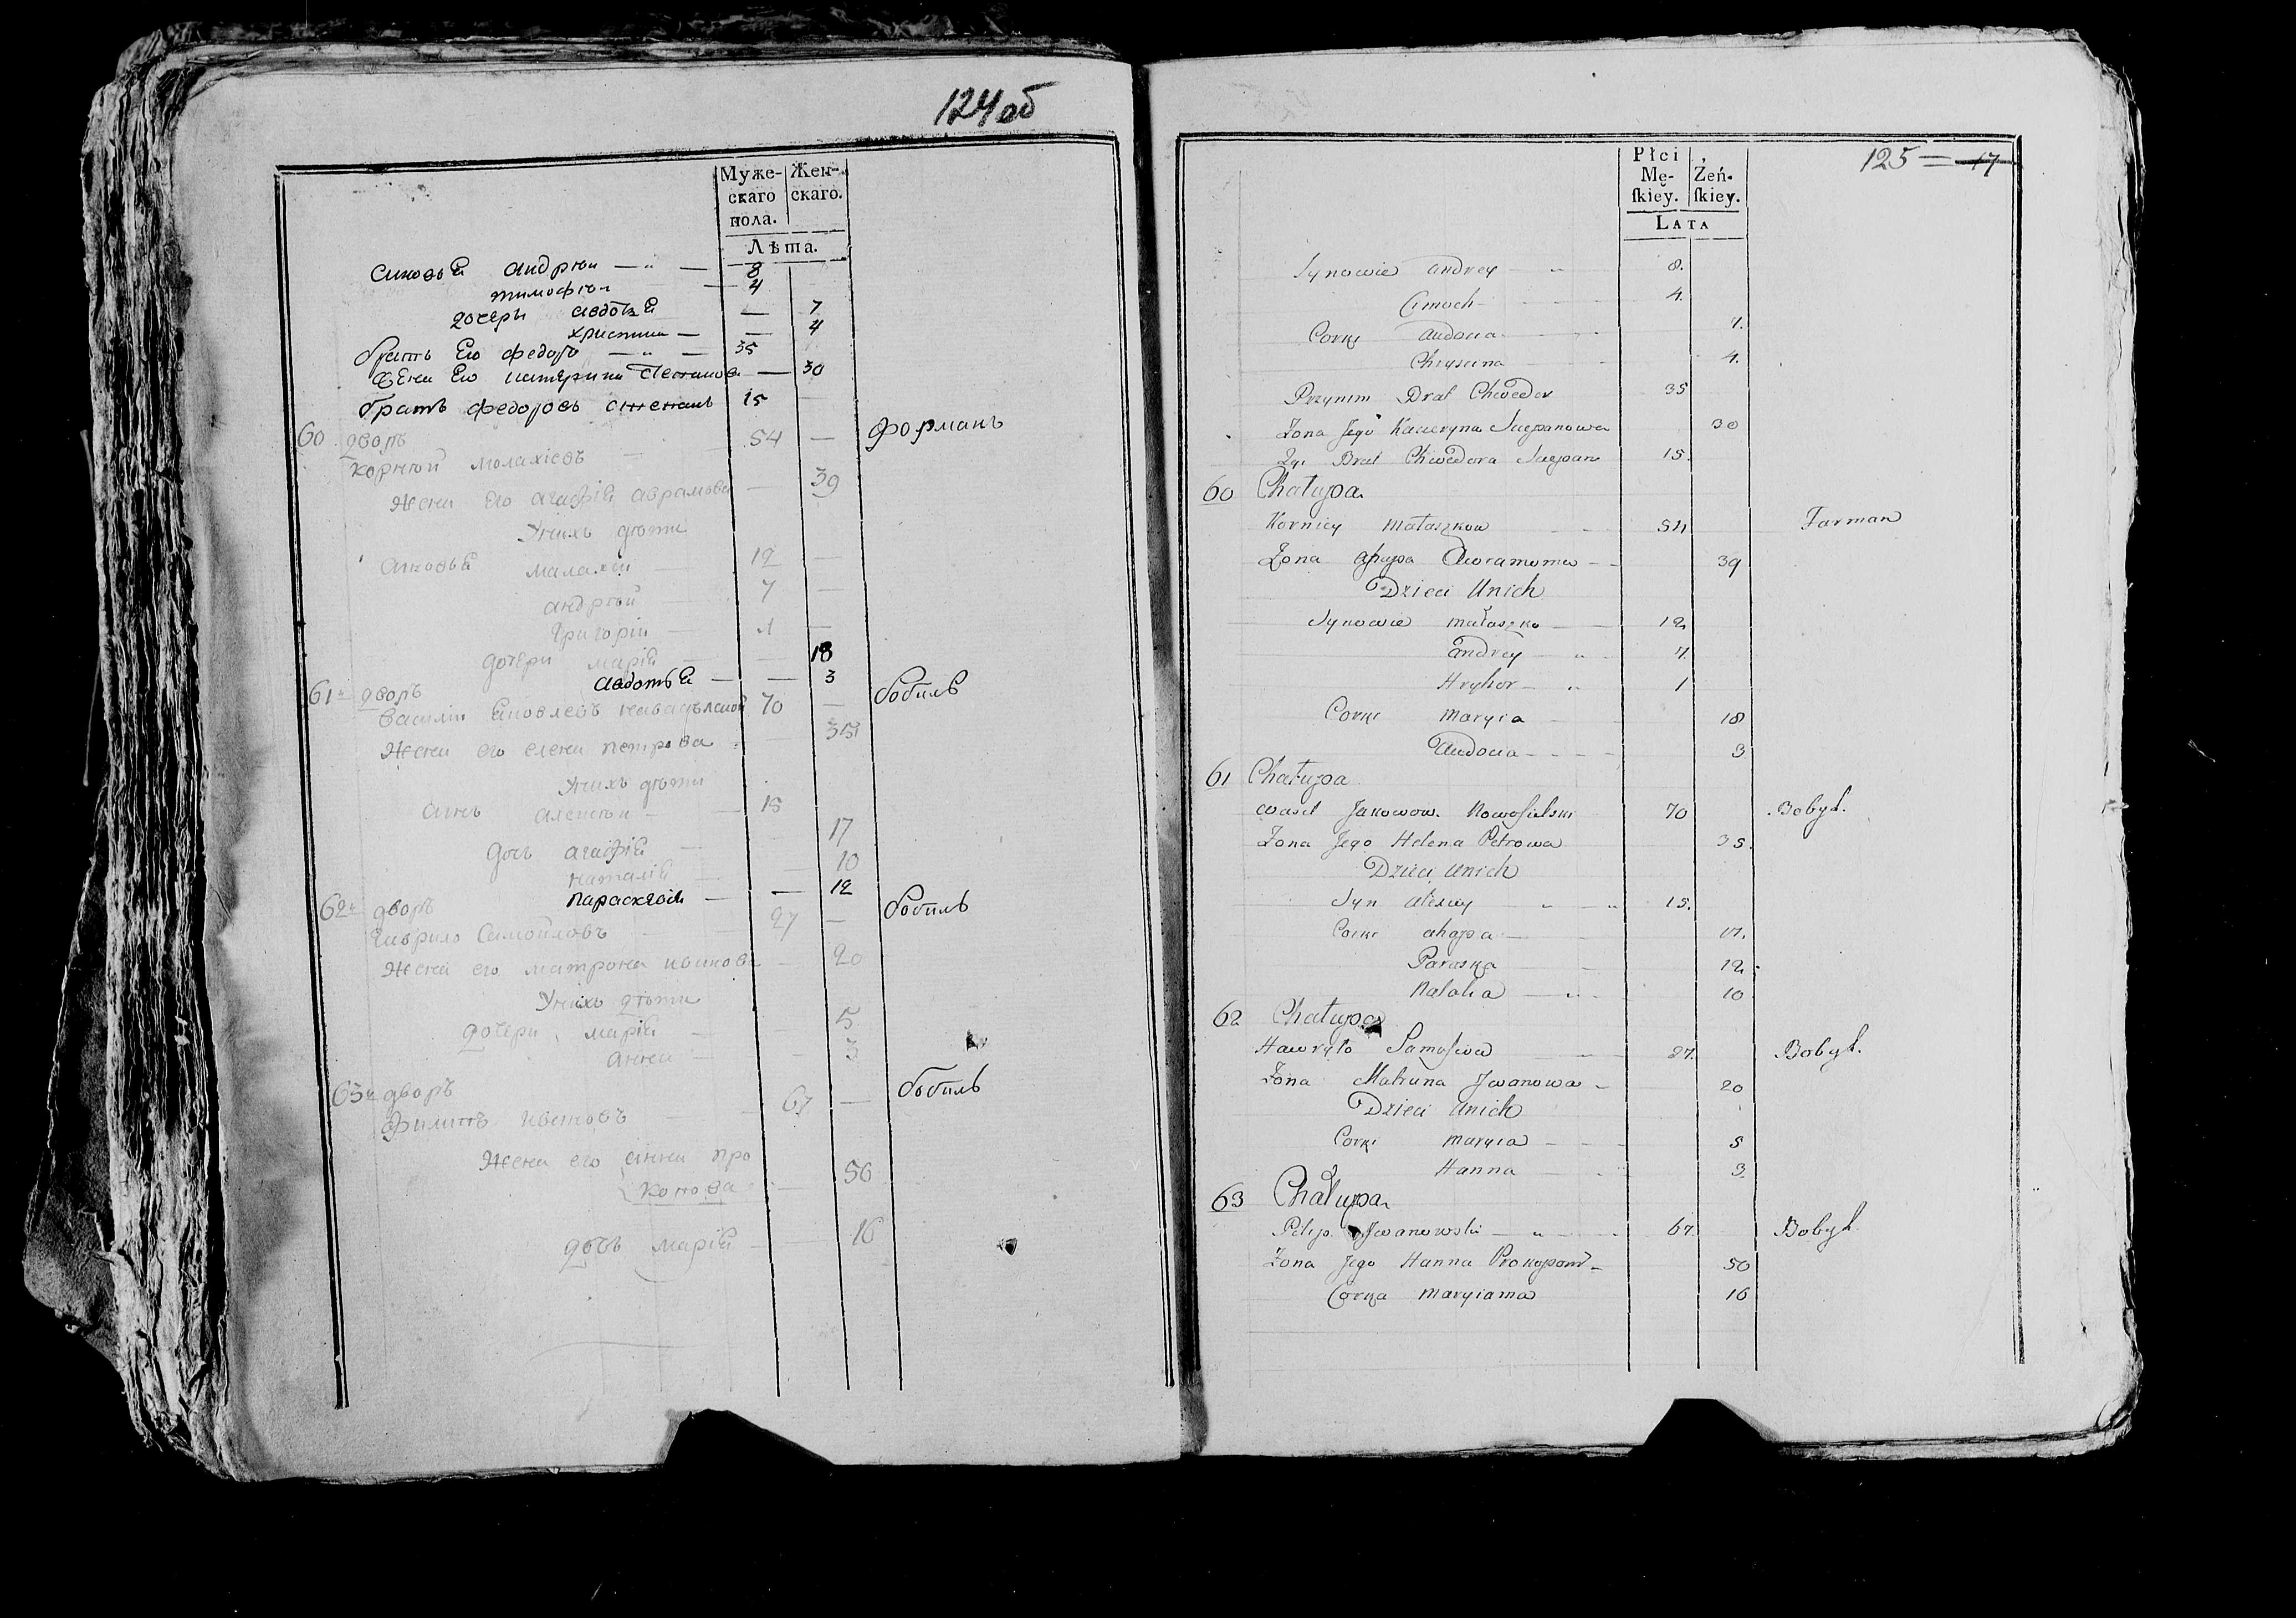 124об
Муже-скаго пола. Жен-скаго.
Лѣта.
синовья андрѣи — „ — 8
тимофѣи — 4
дочерѣ авдотья — 7
христина — — 4
братъ Его федоръ — „ — 35
жена Его катерина Степанова — 30
братъ федоровъ степанъ 15 —
60 дворъ
Корнѣй Малахіевъ — 54 — форманъ
Жена его агафія аврамова — 39
У нихъ дѣти
синовья малахій — 12 —
андрѣй — 7 —
григорій — 1 —
дочери марія — — 18
авдотья — — 3
61й дворъ
василій Яковлевъ 70 — бобиль
Жена его елена петрова — 35
У нихъ дѣти
синъ алексѣй — 15
дочь агафія — 17
наталія — — 10
параскевія — — 12
62й дворъ
Гаврило Самойловъ — 27 — бобиль
Жена его матрона иванова — 20
У нихъ дѣти
дочери марія — 5
анна — — 3
63й дворъ
Филипъ — 67 — бобиль
Жена его анна про
копова — 50
дочь марія — 16
125 = 17
Płci Mę-ſkiey. Żeń-ſkiey.
LATA
Synowie andrey — „ 8.
Cimoch — 4.
Corki audocia — 7.
Chrystina — 4.
Brat Chwedor 35
Zona Jego Kateryna Stepanowa 30
Brat Chwedora Stepan 15.
60 Chałupa
Korniey Małaszkow — 54 Farman
Zona ahapa Awramowa — 39
Dzieci Unich
Synowie małaszko — 12
andrey — „ 7.
Hryhor — „ 1
Corki maryia 18
Audocia — 3
61 Chałupa
wasil Jakowow. Nowosielski 70 Bobyl.
Zona Jego Helena Petrowa 35.
Dzieci unich
Syn alexiey — „ — „ 15.
Corki ahapa — 17.
Paraska 12.
Natalia — „ 10
62 Chałupa
Hawryło Samoſiew 27. Bobyl.
Zona Matruna Jwanowa — 20
Dzieci unich
Corki maryia — 5
Hanna — 3
63 Chałupa
Pilip Jwanowski — „ — 67. Bobyl.
Zona Jego Hanna Prokopow — 50
Corka maryianna 16